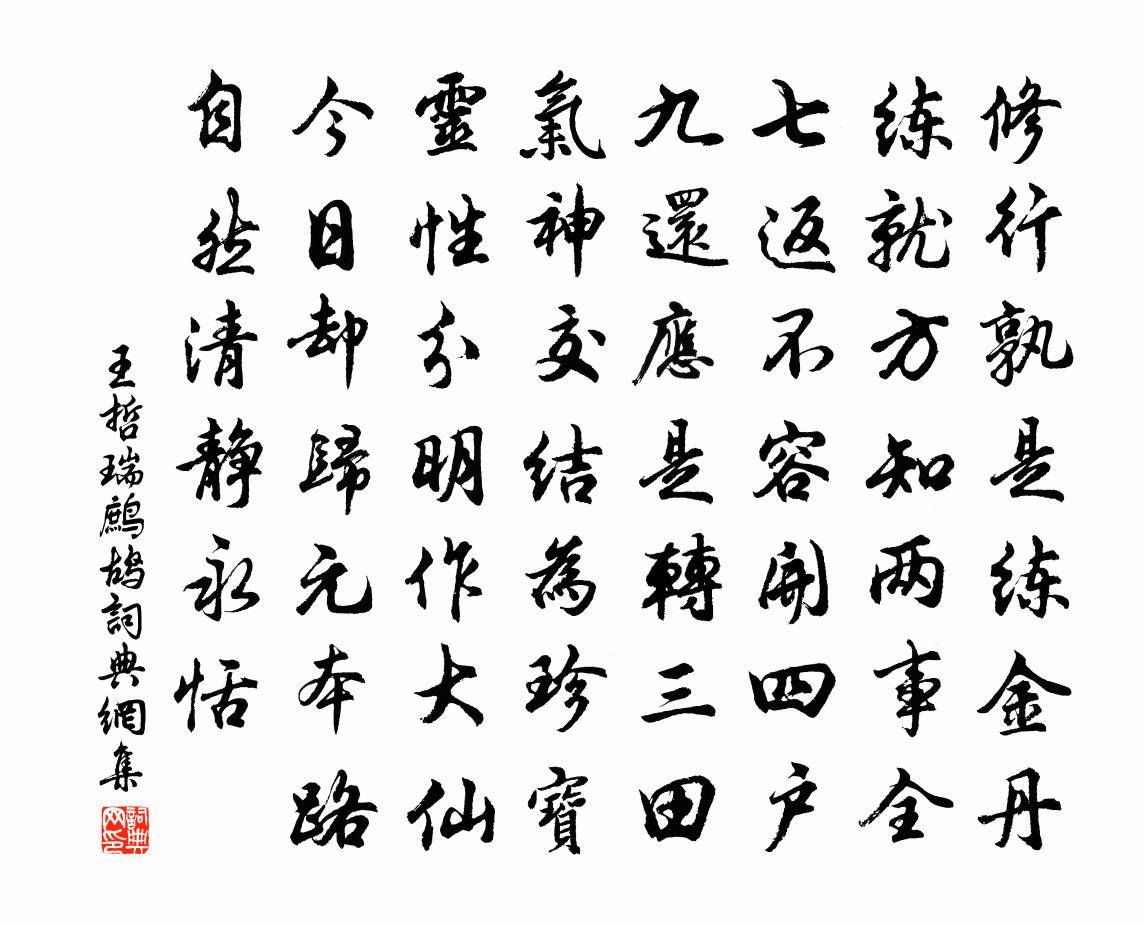 修行孰是练金丹
练就方知两事全
七返不容開四户
九還應是轉三田
氣神交結為珍寶
靈性分明作大仙
今日却歸元本路
自然清靜永恬
王哲瑞鷓鴣詞典網集
詞典网印